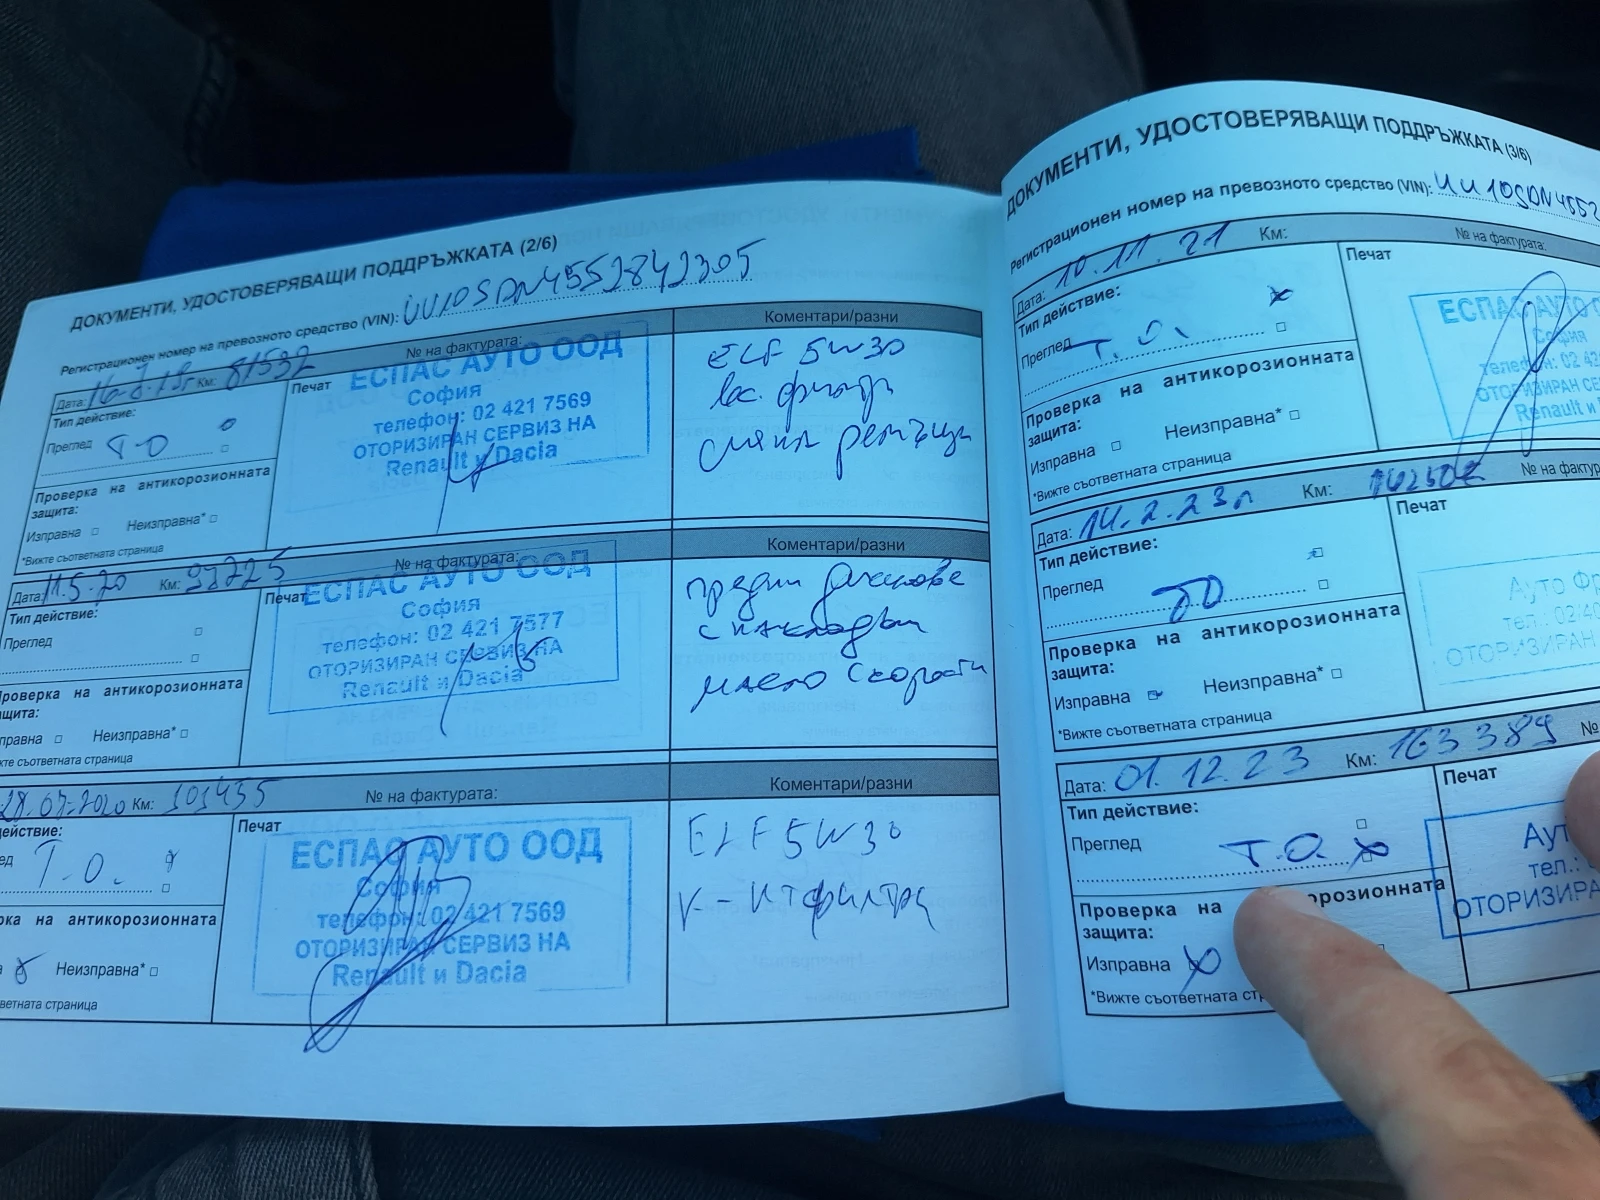 ДОКУМЕНТИ, УДОСТОВЕРЯВАЩИ ПОДДРЪЖКАТА (2/6)
Регистрационен номер на превозното средство (VIN): UU10SDN4552842305
Дата: Км: 81532 № на фактурата:
Тип действие:
Преглед ТО
Проверка на антикорозионната
защита:
Изправна Неизправна*
*Вижте съответната страница
Печат
ЕСПАС АУТО ООД
София
телефон: 02 421 7569
ОТОРИЗИРАН СЕРВИЗ НА
Renault и Dacia
Коментари/разни
ELF 5W30
Дата: 11.5.20 Км: № на фактурата:
Тип действие:
Преглед
Проверка на антикорозионната
защита:
правна Неизправна*
жте съответната страница
Печат
ЕСПАС АУТО ООД
София
телефон: 02 421 7577
ОТОРИЗИРАН СЕРВИЗ НА
Renault и Dacia
Коментари/разни
предни
с накладки
масло скорости
Км: 101435 № на фактурата:
действие:
ед Т.О.
рка на антикорозионната
а Неизправна*
ветната страница
Печат
ЕСПАС АУТО ООД
София
телефон: 02 421 7569
ОТОРИЗИРАН СЕРВИЗ НА
Renault и Dacia
Коментари/разни
ELF 5W30
К-кт филтри
ДОКУМЕНТИ, УДОСТОВЕРЯВАЩИ ПОДДРЪЖКАТА (3/6)
Регистрационен номер на превозното средство (VIN): UU10SDN4552
Дата: 10.11.21 Км: № на фактурата:
Тип действие:
Преглед Т.О.
Проверка на антикорозионната
защита:
Изправна Неизправна*
*Вижте съответната страница
Печат
ЕСПАС АУТО
София
телефон: 02 42
ОТОРИЗИРАН СЕ
Renault и
Дата: 14.2.23г Км: № на фактур
Тип действие:
Преглед ТО
Проверка на антикорозионната
защита:
Изправна Неизправна*
*Вижте съответната страница
Печат
Ауто Фр
тел.: 02/40
ОТОРИЗИРАН
Дата: 01.12.23 Км: 163389 №
Тип действие:
Преглед Т.О.
Проверка на орозионната
защита:
Изправна
*Вижте съответната ст
Печат
Аут
тел.:
ОТОРИЗИРА